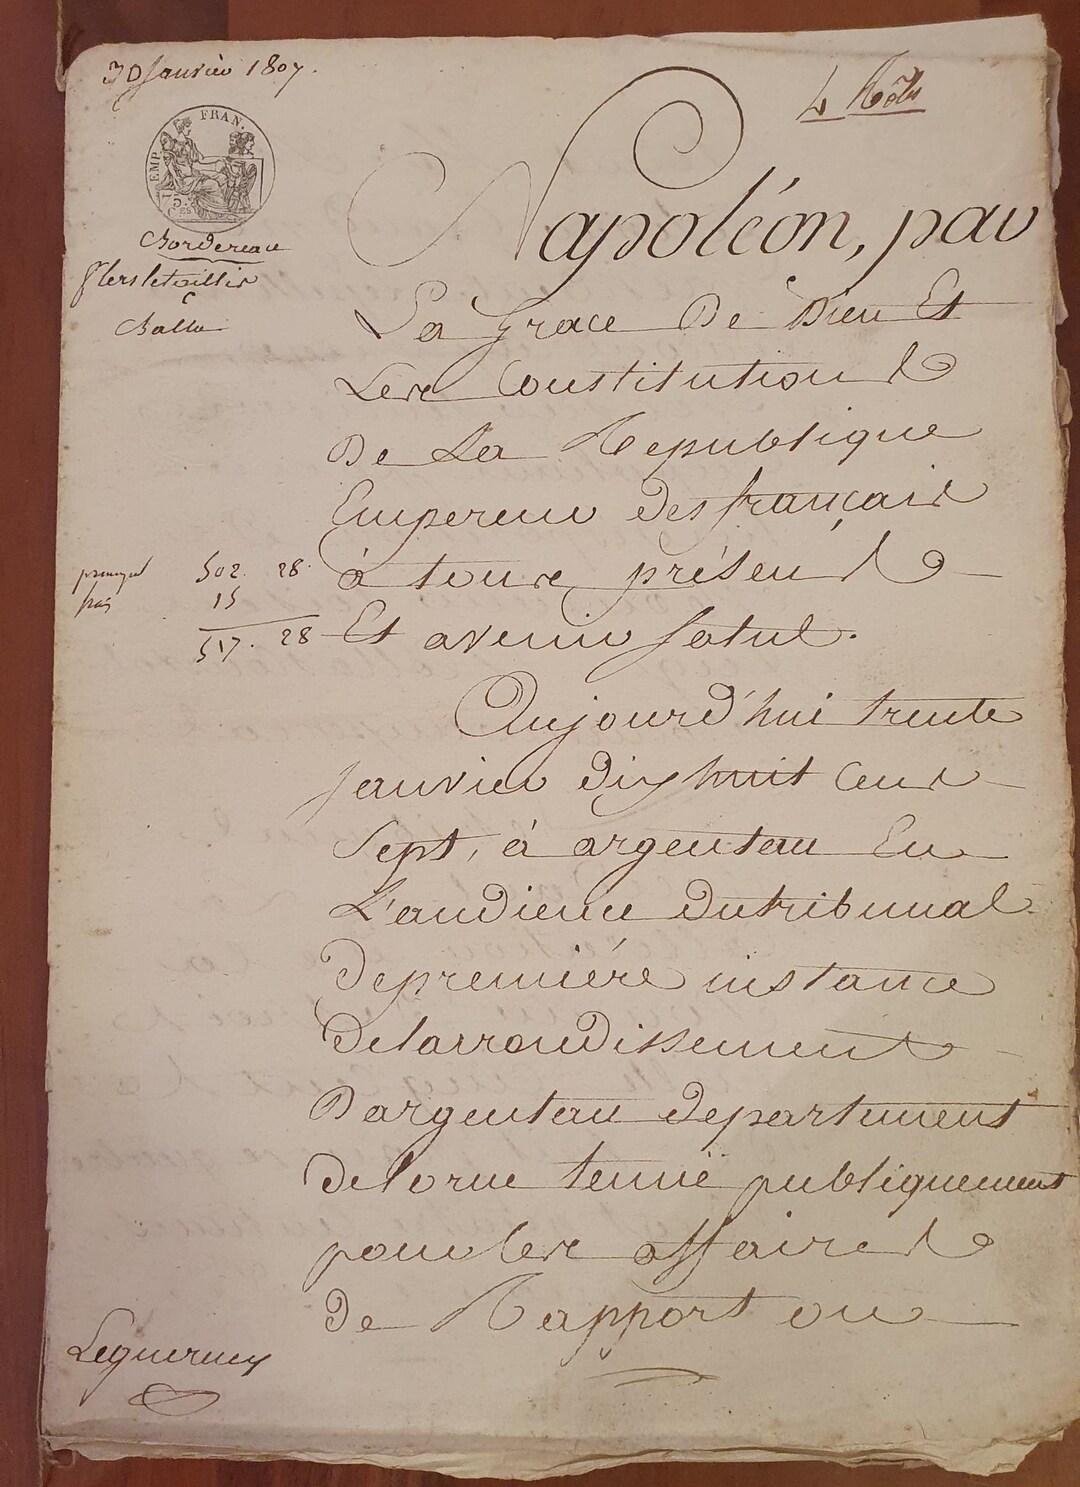 30 Janvier 1807.
4 Rôles
EMP. FRAN.
75 Ces
Bordereau
Napoléon, par
La Grace De Dieu Et
Les Constitutions
De La Republique
Empereur des français
à tous présens
Et avenir salut.
principal 502. 28.
frais 15
517. 28
Aujourd'hui trente
Janvier dix huit Cens
Sept, à argentan En
L'audience du tribunal
de premiére instance
de larrondissement
Dargentan departement
de lorne tenuë publiquement
pour les affaires
de Rapport ou
Lequerney